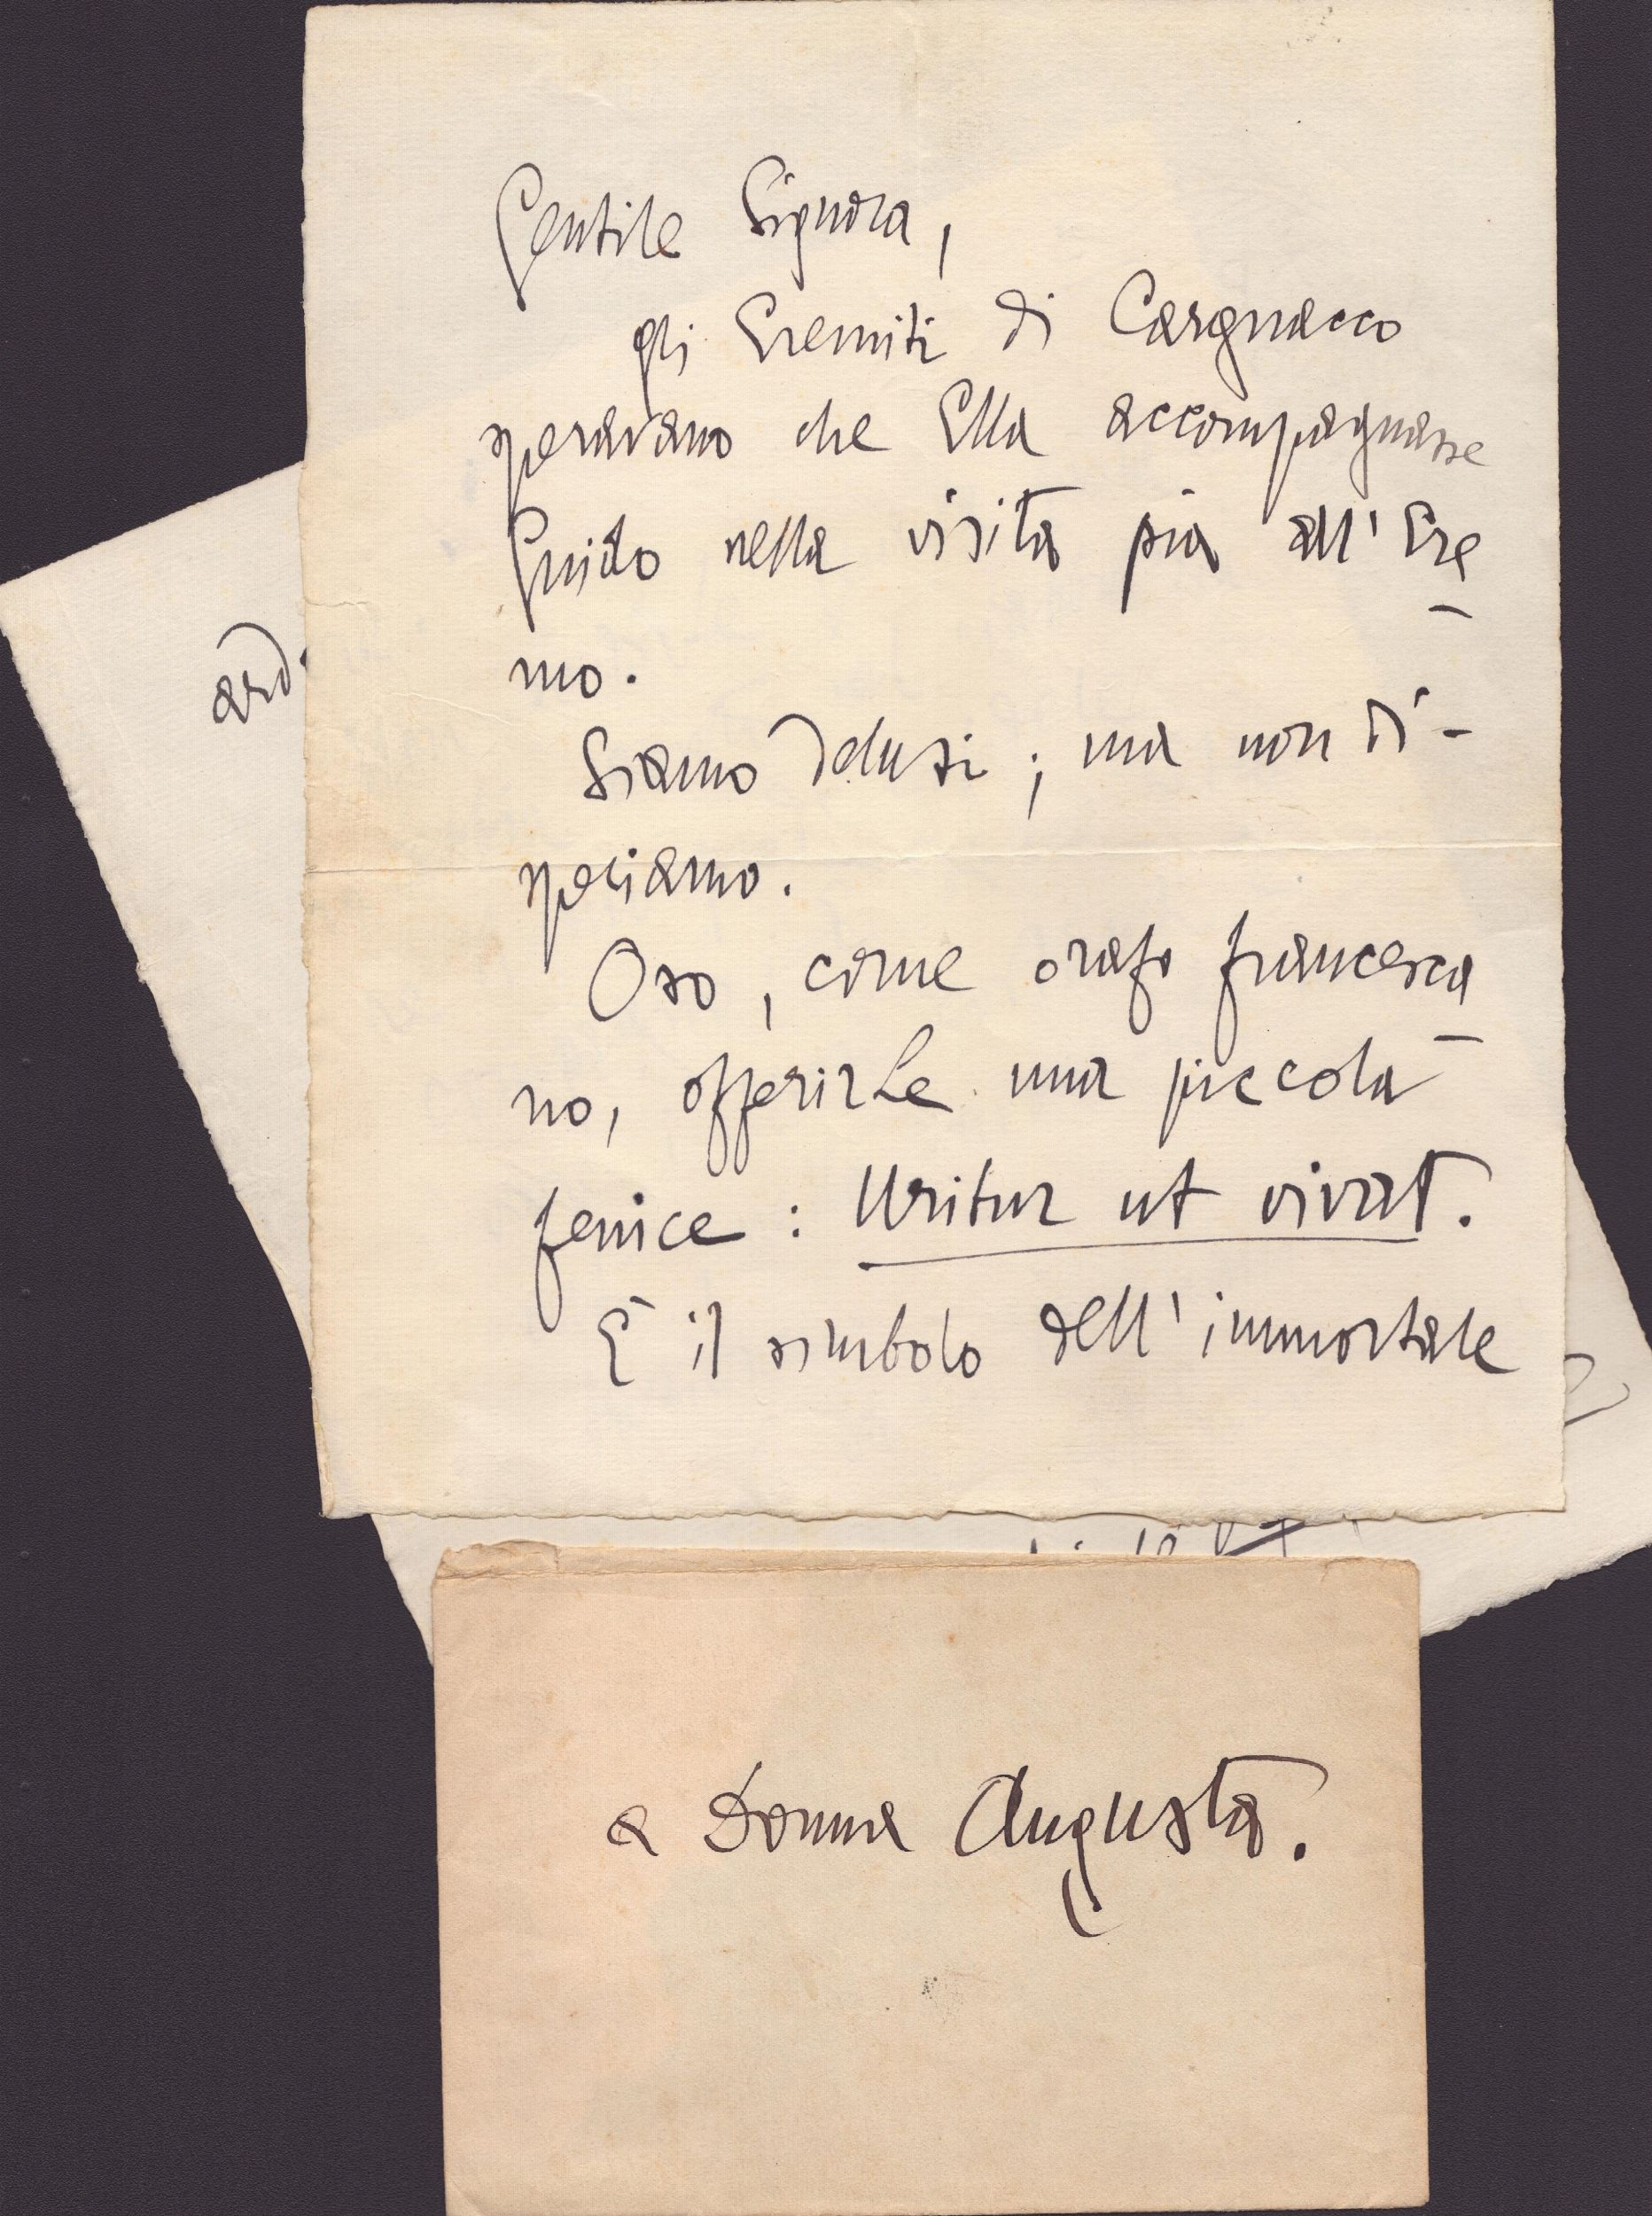 Gentile Signora,
gli Eremiti di Cargnacco
speravano che Ella accompagnasse
Guido nella visita pia all'Ere
mo.
Siamo delusi; ma non di-
speriamo.
Oso, come orafo francesca
no, offerirLe una piccola
fenice: Uritur ut vivat.
È il simbolo dell'immortale
ard
a Donna Augusta.